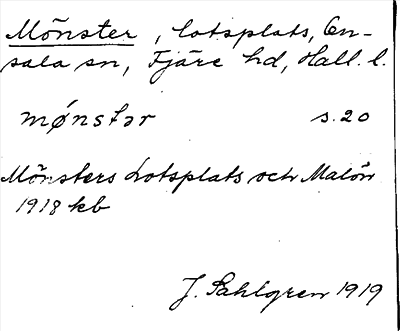 Mönster, lotsplats, On-
sala sn, Fjäre hd, Hall. l.
mønstər s. 20
Mönsters Lotsplats och Malön
1918 kb
J. Sahlgren 1919